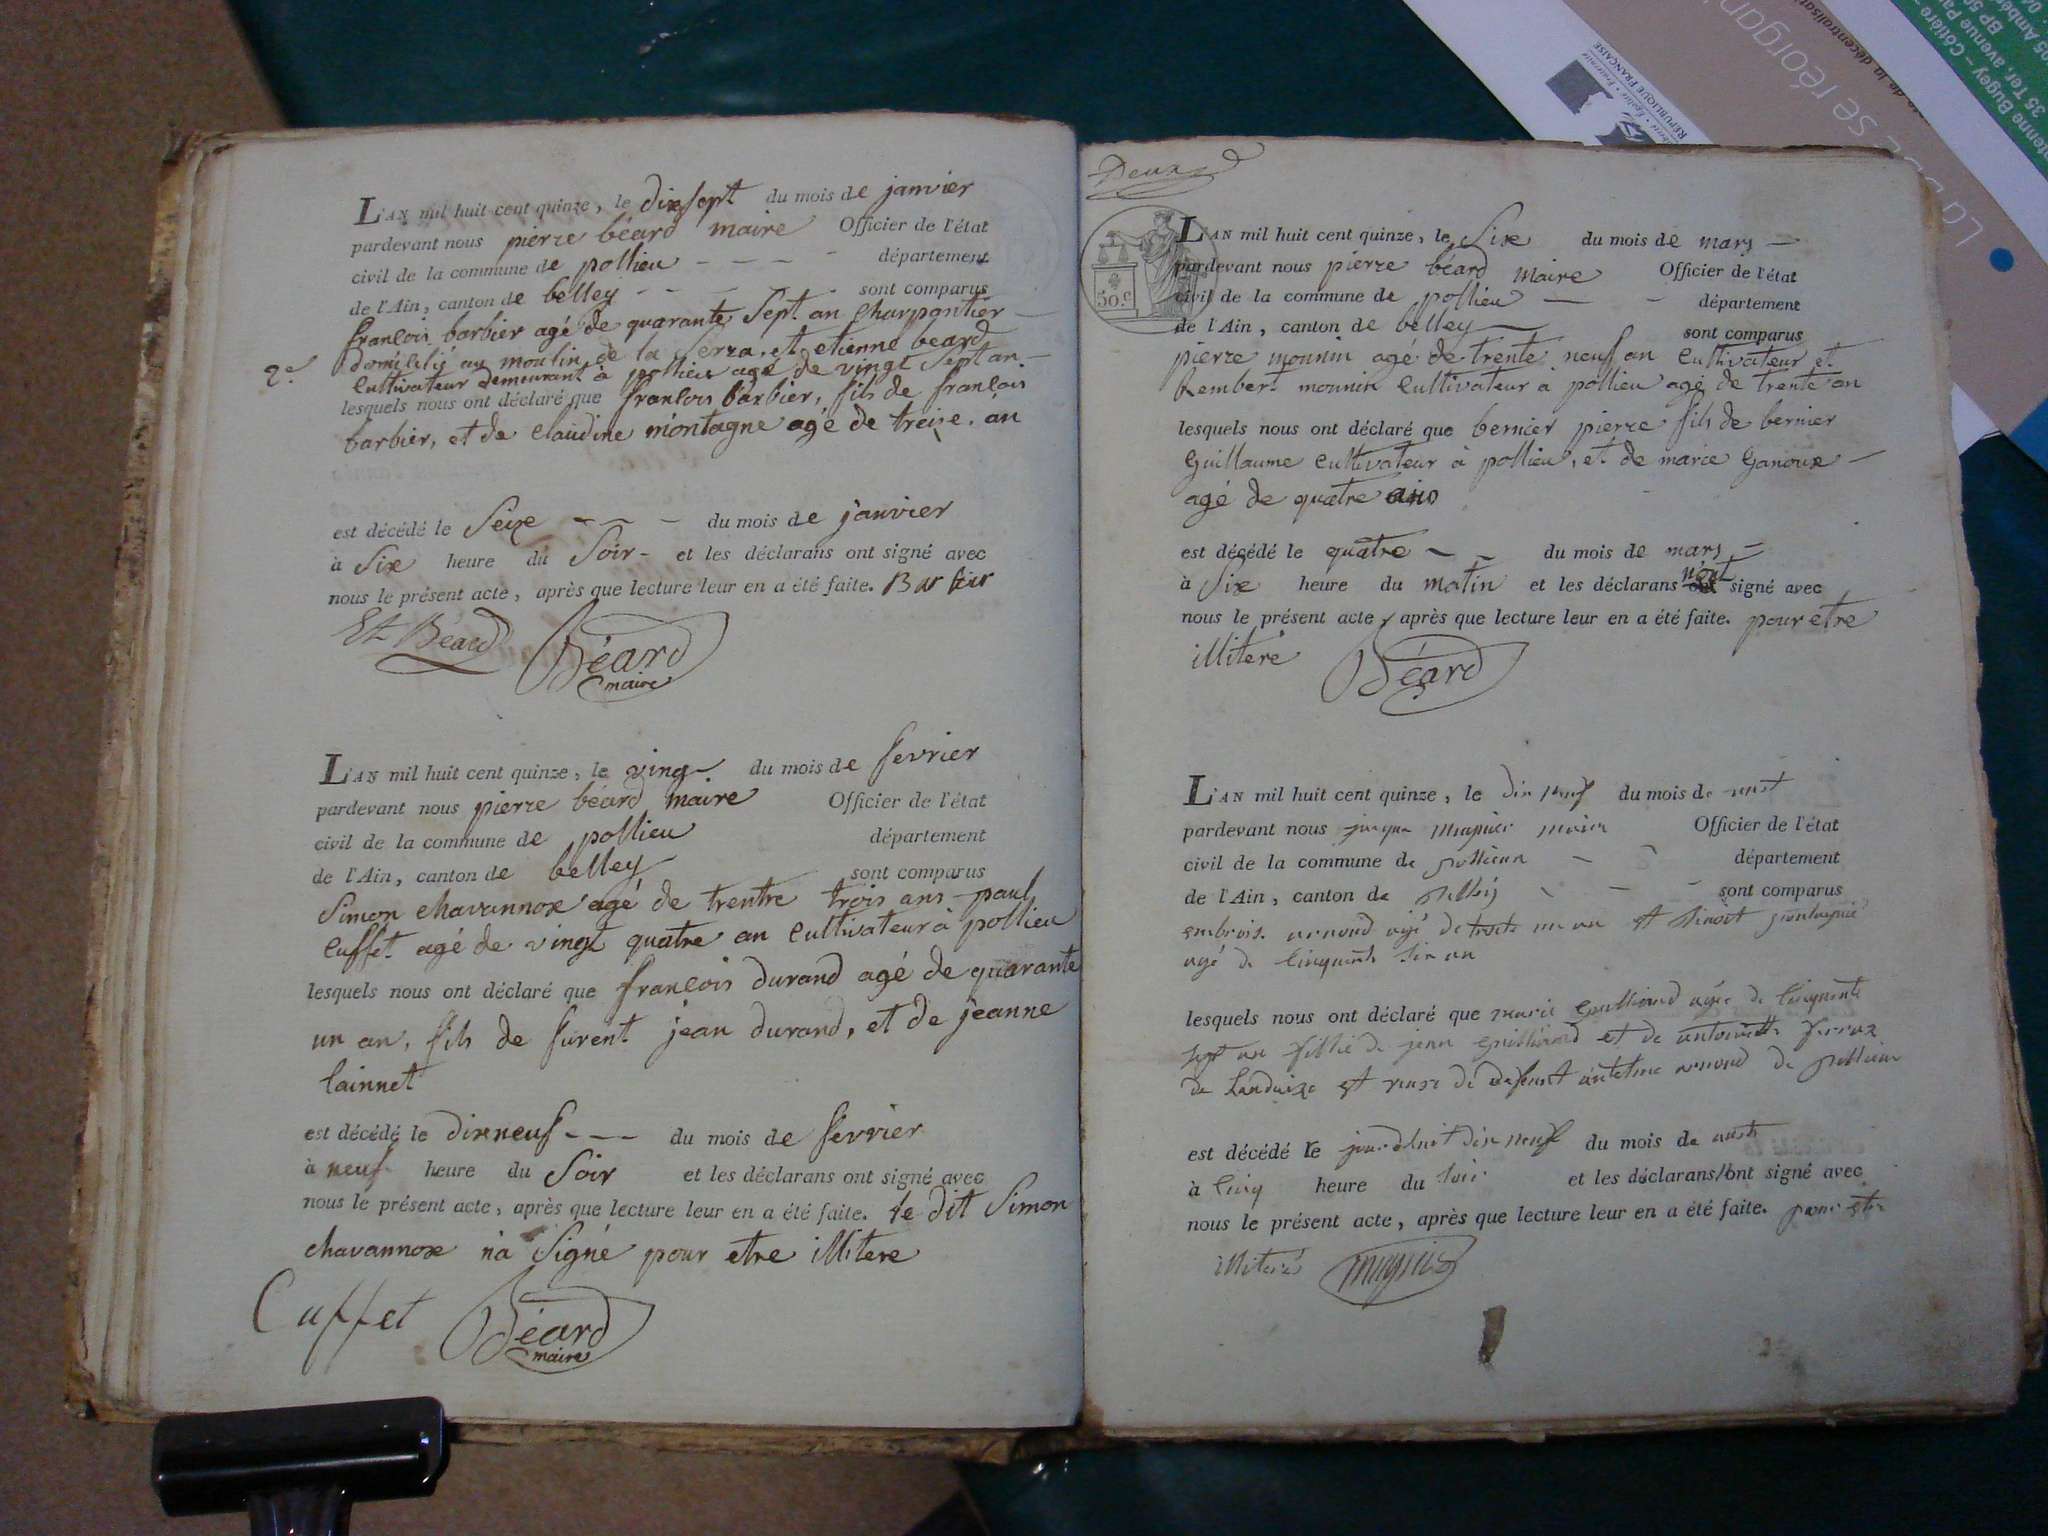 L'AN mil huit cent quinze, le dixsept du mois de janvier
pardevant nous pierre béard maire Officier de l'état
civil de la commune de pollieu département
de l'Ain, canton de belley sont comparus
françois barbier agé de quarante sept an charpantier
domicilié au moulin de la Serra, et etienne beard
2e cultivateur demeurant à pollieu agé de vingt sept an
lesquels nous ont déclaré que françois barbier, fils de françois
barbier, et de claudine montagne agé de treize an
est décédé le Seize du mois de janvier
à Six heure du Soir et les déclarans ont signé avec
nous le présent acte, après que lecture leur en a été faite. Barbier
Et Béard Béard
maire
L'AN mil huit cent quinze, le ving du mois de fevrier
pardevant nous pierre béard maire Officier de l'état
civil de la commune de pollieu département
de l'Ain, canton de belley sont comparus
Simon chavannoz agé de trentre trois ans paul
cuffet agé de vingt quatre an cultivateur à pollieu
lesquels nous ont déclaré que françois durand agé de quarante
un an, fils de furent jean durand, et de jeanne
lainnet
est décédé le dixneuf du mois de fevrier
à neuf heure du Soir et les déclarans ont signé avec
nous le présent acte, après que lecture leur en a été faite. le dit Simon
chavannoz na Signé pour etre illitere
Cuffet Béard
maire
Deux
50.c
L'AN mil huit cent quinze, le Six du mois de mars
pardevant nous pierre béard maire Officier de l'état
civil de la commune de pollieu département
de l'Ain, canton de belley sont comparus
pierre mounin agé de trente neuf an cultivateur et
Rembert mounin cultivateur à pollieu agé de trente an
lesquels nous ont déclaré que bernier pierre fils de bernier
Guillaume cultivateur à pollieu, et de marie Ganoux
agé de quatre ans
est décédé le quatre du mois de mars
à Six heure du matin et les déclarans n'ont signé avec
nous le présent acte, après que lecture leur en a été faite. pour etre
illiteré Béard
L'AN mil huit cent quinze, le dix neuf du mois de aust
pardevant nous jacque Officier de l'état
civil de la commune de pollieu département
de l'Ain, canton de belley sont comparus
embrois arnoud agé de trente un an et Benoit
agé de cinquante six an
lesquels nous ont déclaré que marie Guilliand agée de cinquante
sept an fillie de jean Guilliand et de antoinette
de et veuve de defeunt antelme arnoud de pollieu
est décédé le jourdhuit dix neuf du mois de aust
à cinq heure du soir et les déclarans ont signé avec
nous le présent acte, après que lecture leur en a été faite. pour etre
illiteré
Liberté • Égalité • Fraternité
RÉPUBLIQUE FRANÇAISE
se réorgani
la décentralisati
35 Ter, avenue